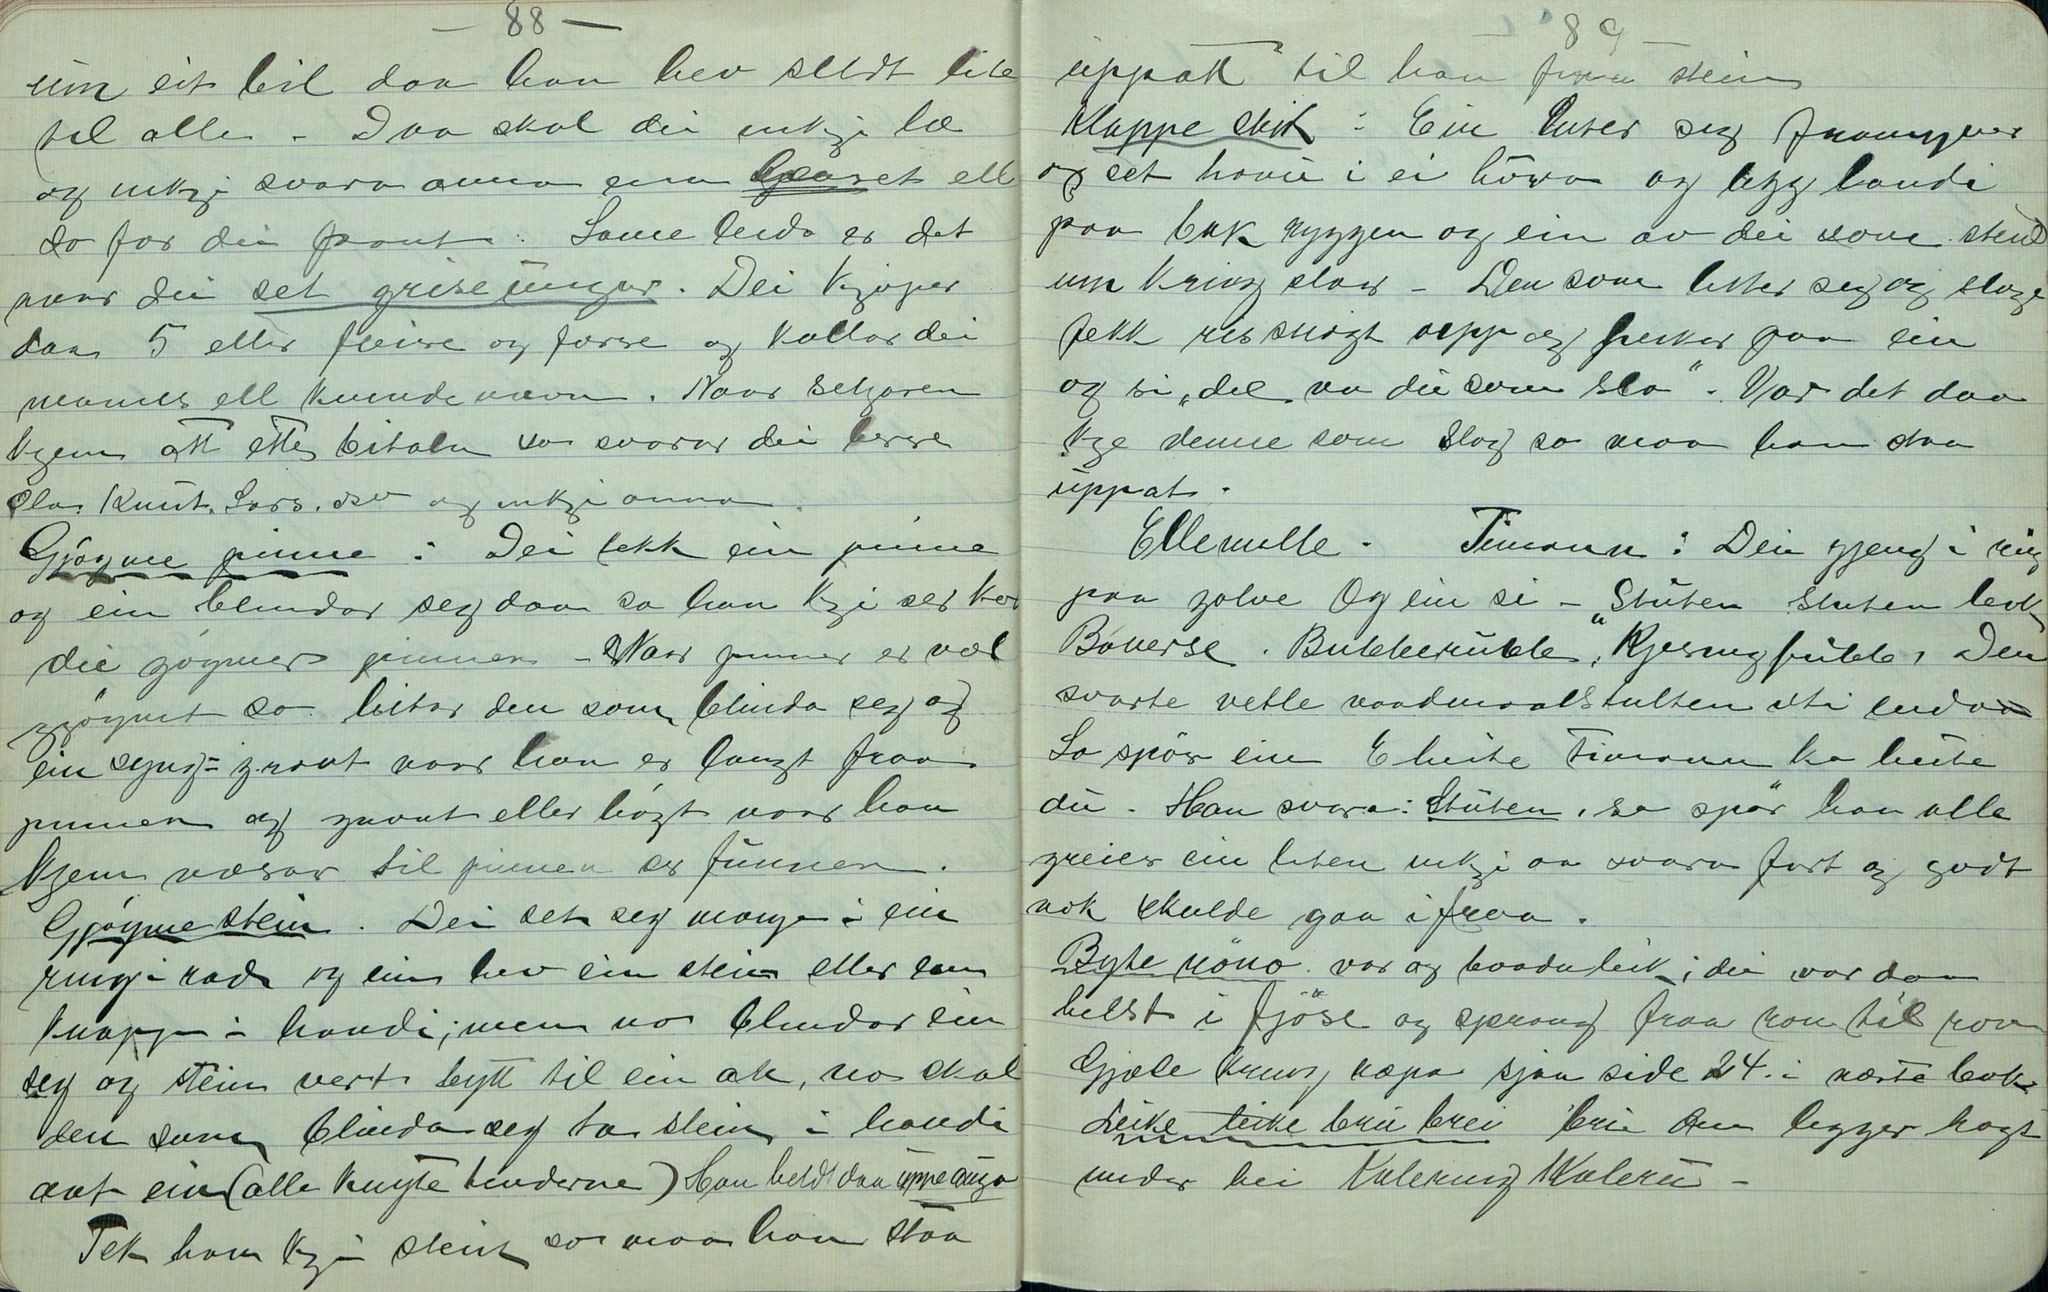 — 88 —
um eit bil daa han hev seldt lite
til alle. — Daa skal dei inkje læ
og inkje svara anna enn ell
so fær dei pant. Same leides er det
naar dei set griseungar. Dei kjøper
daa 5 eller fleire og færre og kallar dei
manns ell kvinde navn. Naar seljaren
kjem att etter bitaln so svarar dei berre
Ola, Knut, Lars. osv og inkje anna.
Gjøyme pinne: Dei tekk ein pinne
og ein blindar seg daa so han kje ser kor
dei gøymer pinnen — Naar pinnen er vel
gjøymt so leitar den som blinda seg og
ein syng = grovt naar han er langt fraa
pinnen og grant eller høgt naar han
kjem nærar til pinnen er funnen.
Gjøyme stein. Dei set seg mange i ein
ring i rad og ein hev ein stein eller ein
knapp i handi; men no blindar ein
seg og stein vert bytt til ein ak, no skal
den som blinda seg ta stein i handi
aat ein (alle knyte henderne) Han heldt daa uppe auga
Tek han kje stein so maa han staa
89
uppatt til han finn stein
Klappe skit: Ein luter seg framyver
og set hovu i ei hóva og legg handi
paa bak ryggen og ein av dei som stend
um kring slaar — Den som letter seg og slage
fekk ris snøgt upp og peikar paa ein
og si „del va du som slo". Var det daa
kje denne som slog so maa han staa
uppat.
Ellemelle. Timann: Dei gjeng i ring
paa golve Og ein si — „Stuten Stuten
Bukkerukk, Kjeringfukk, Den
svarte vetle vadmaalstulten uti enda
So spør ein E heite Timann ka heite
du. Han svara: Stuten, so spør han alle
greier ein liten inkje aa svara fort og godt
nok skulde gaa ifraa.
Byte rono var og baadnleik; dei var daa
helst i fjöse og sprang fraa ron til ron
Gjæle kring næpa sjaa side 24. i næste bok
Leike leike brii brei brii den legger høgt
under hei